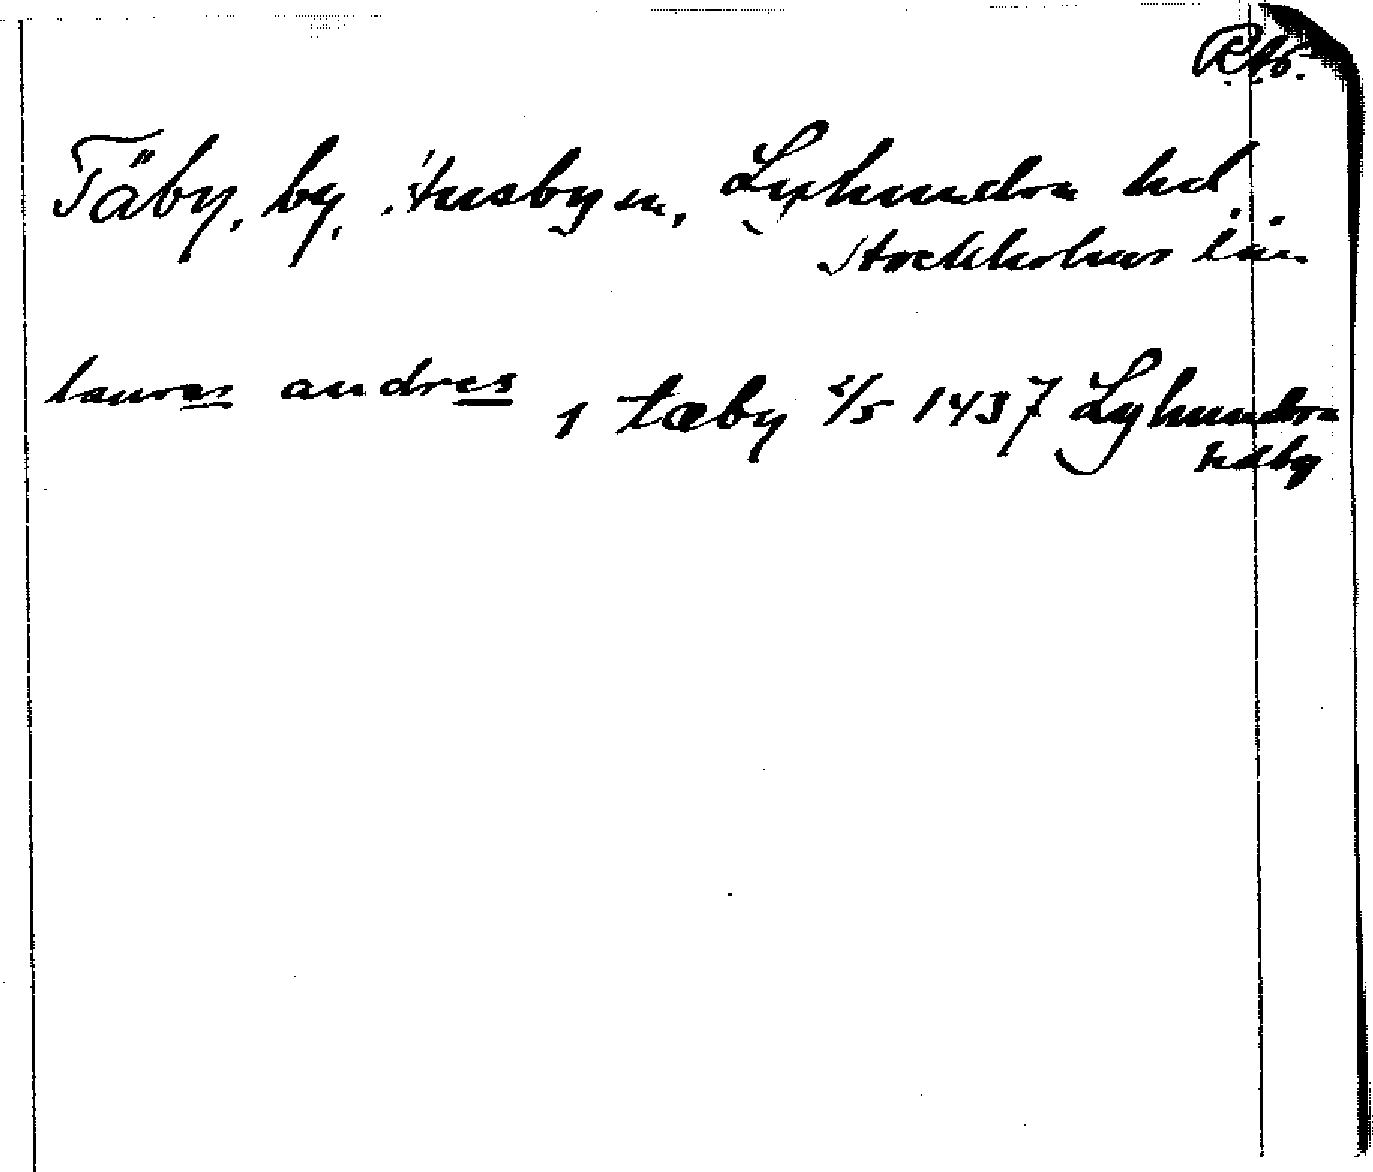 Täby, by, Husby sn, Lyhundra hd
Stockholms län
laures andres 1 tæby 2/5 1437 Lyhundra
hdby